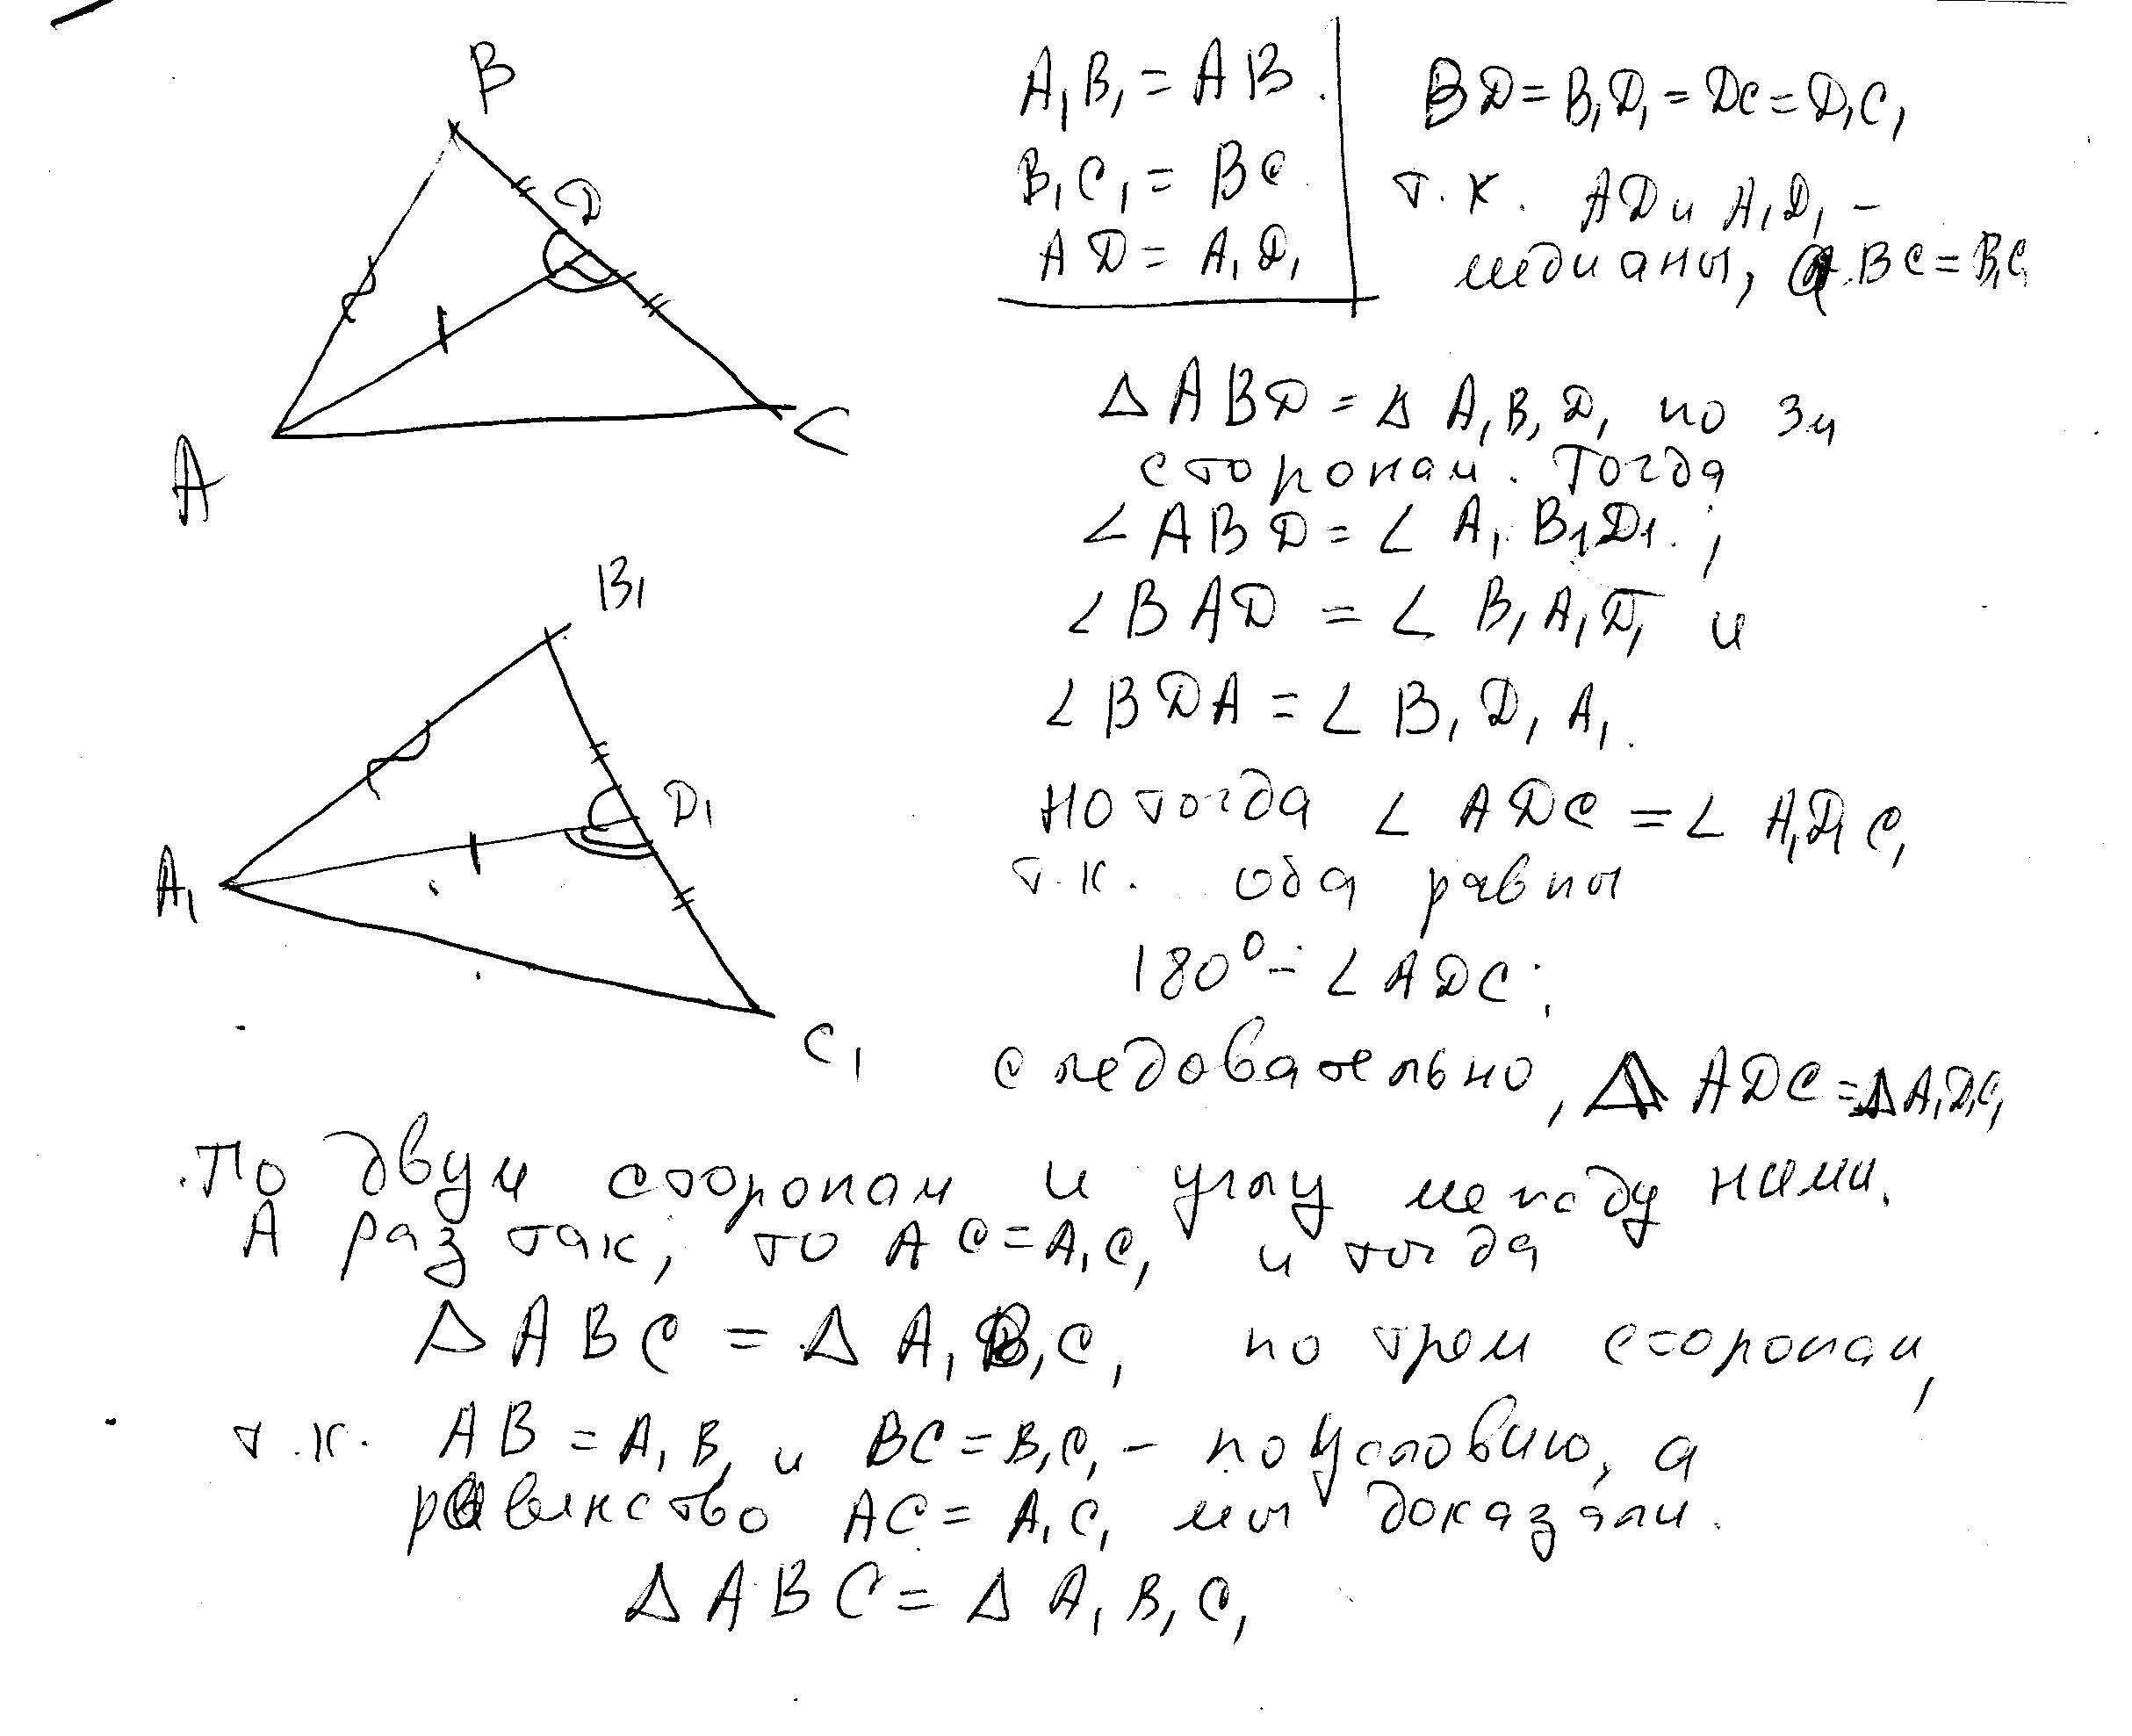 B
D
A
C
B₁
D₁
A₁
C₁
A₁B₁ = AB.
B₁C₁ = BC
AD = A₁D₁
BD = B₁D₁ = DC = D₁C₁
т.к. AD и A₁D₁ –
медианы, а BC = B₁C₁
Δ ABD = Δ A₁B₁D₁ по 3м
сторонам. Тогда
∠ ABD = ∠ A₁B₁D₁;
∠ BAD = ∠ B₁A₁D₁ и
∠ BDA = ∠ B₁D₁A₁.
Но тогда ∠ ADC = ∠ A₁D₁C₁
т.к. оба равны
180° – ∠ ADC;
следовательно, Δ ADC = Δ A₁D₁C₁
По двум сторонам и углу между ними.
А раз так, то AC = A₁C₁ и тогда
Δ ABC = Δ A₁B₁C₁ по трем сторонам,
т.к. AB = A₁B₁ и BC = B₁C₁ – по условию, а
равенство AC = A₁C₁ мы доказали.
Δ ABC = Δ A₁B₁C₁